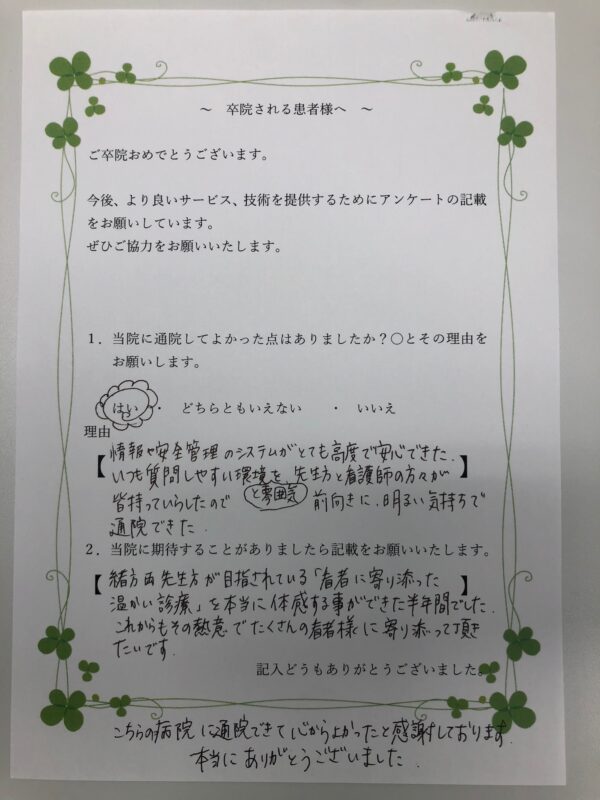 ～ 卒院される患者様へ ～
ご卒院おめでとうございます。
今後、より良いサービス、技術を提供するためにアンケートの記載
をお願いしています。
ぜひご協力をお願いいたします。
1．当院に通院してよかった点はありましたか？○とその理由を
お願いします。
はい ・ どちらともいえない ・ いいえ
理由
【情報や安全管理のシステムがとても高度で安心できた.
いつも質問しやすい環境を 先生方と看護師の方々が】
と雰囲気
皆持っていらしたので 前向きに、明るい気持ちで
通院できた.
2．当院に期待することがありましたら記載をお願いいたします。
【緒方両先生方が目指されている「患者に寄り添った】
温かい診療」を本当に体感する事ができた半年間でした.
これからもその熱意でたくさんの患者様に寄り添って頂き
たいです.
記入どうもありがとうございました。
こちらの病院に通院できて心からよかったと感謝しております.
本当にありがとうございました.